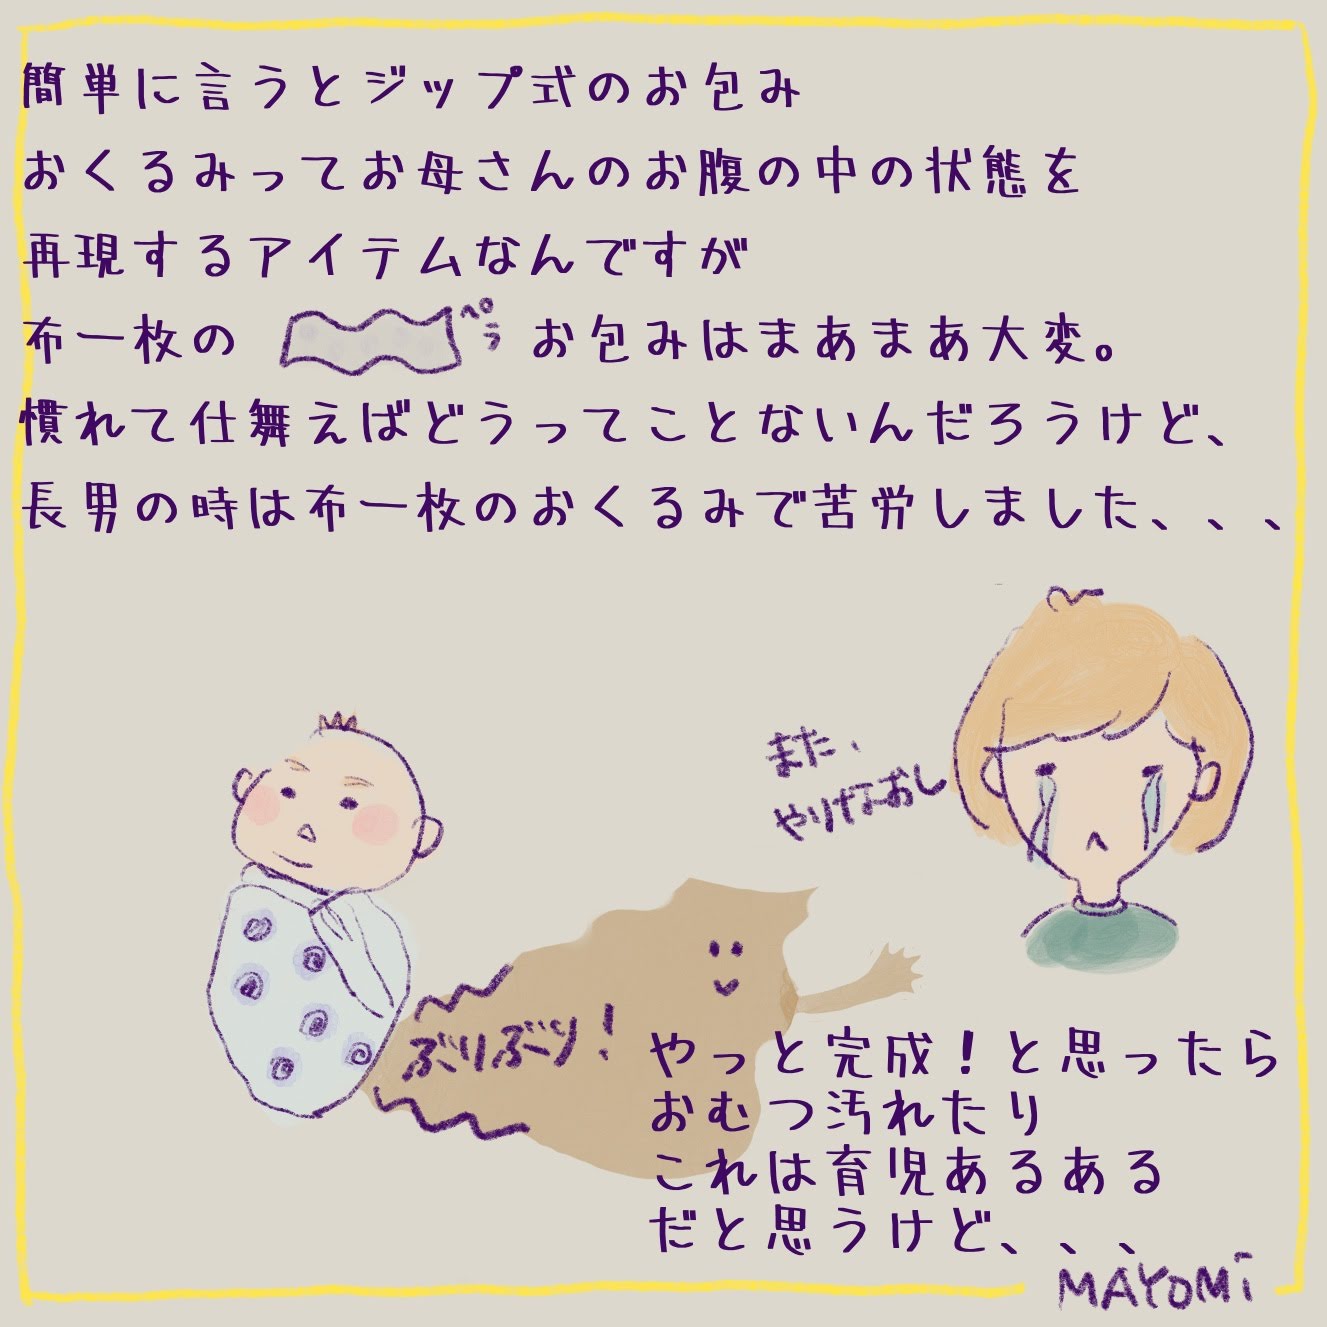 簡単に言うとジップ式のお包み
おくるみってお母さんのお腹の中の状態を
再現するアイテムなんですが
布一枚の ペラ お包みはまあまあ大変。
慣れて仕舞えばどうってことないんだろうけど、
長男の時は布一枚のおくるみで苦労しました、、、
また、
やりなおし
ぶりぶり!
やっと完成!と思ったら
おむつ汚れたり
これは育児あるある
だと思うけど、、、
MAYOMi